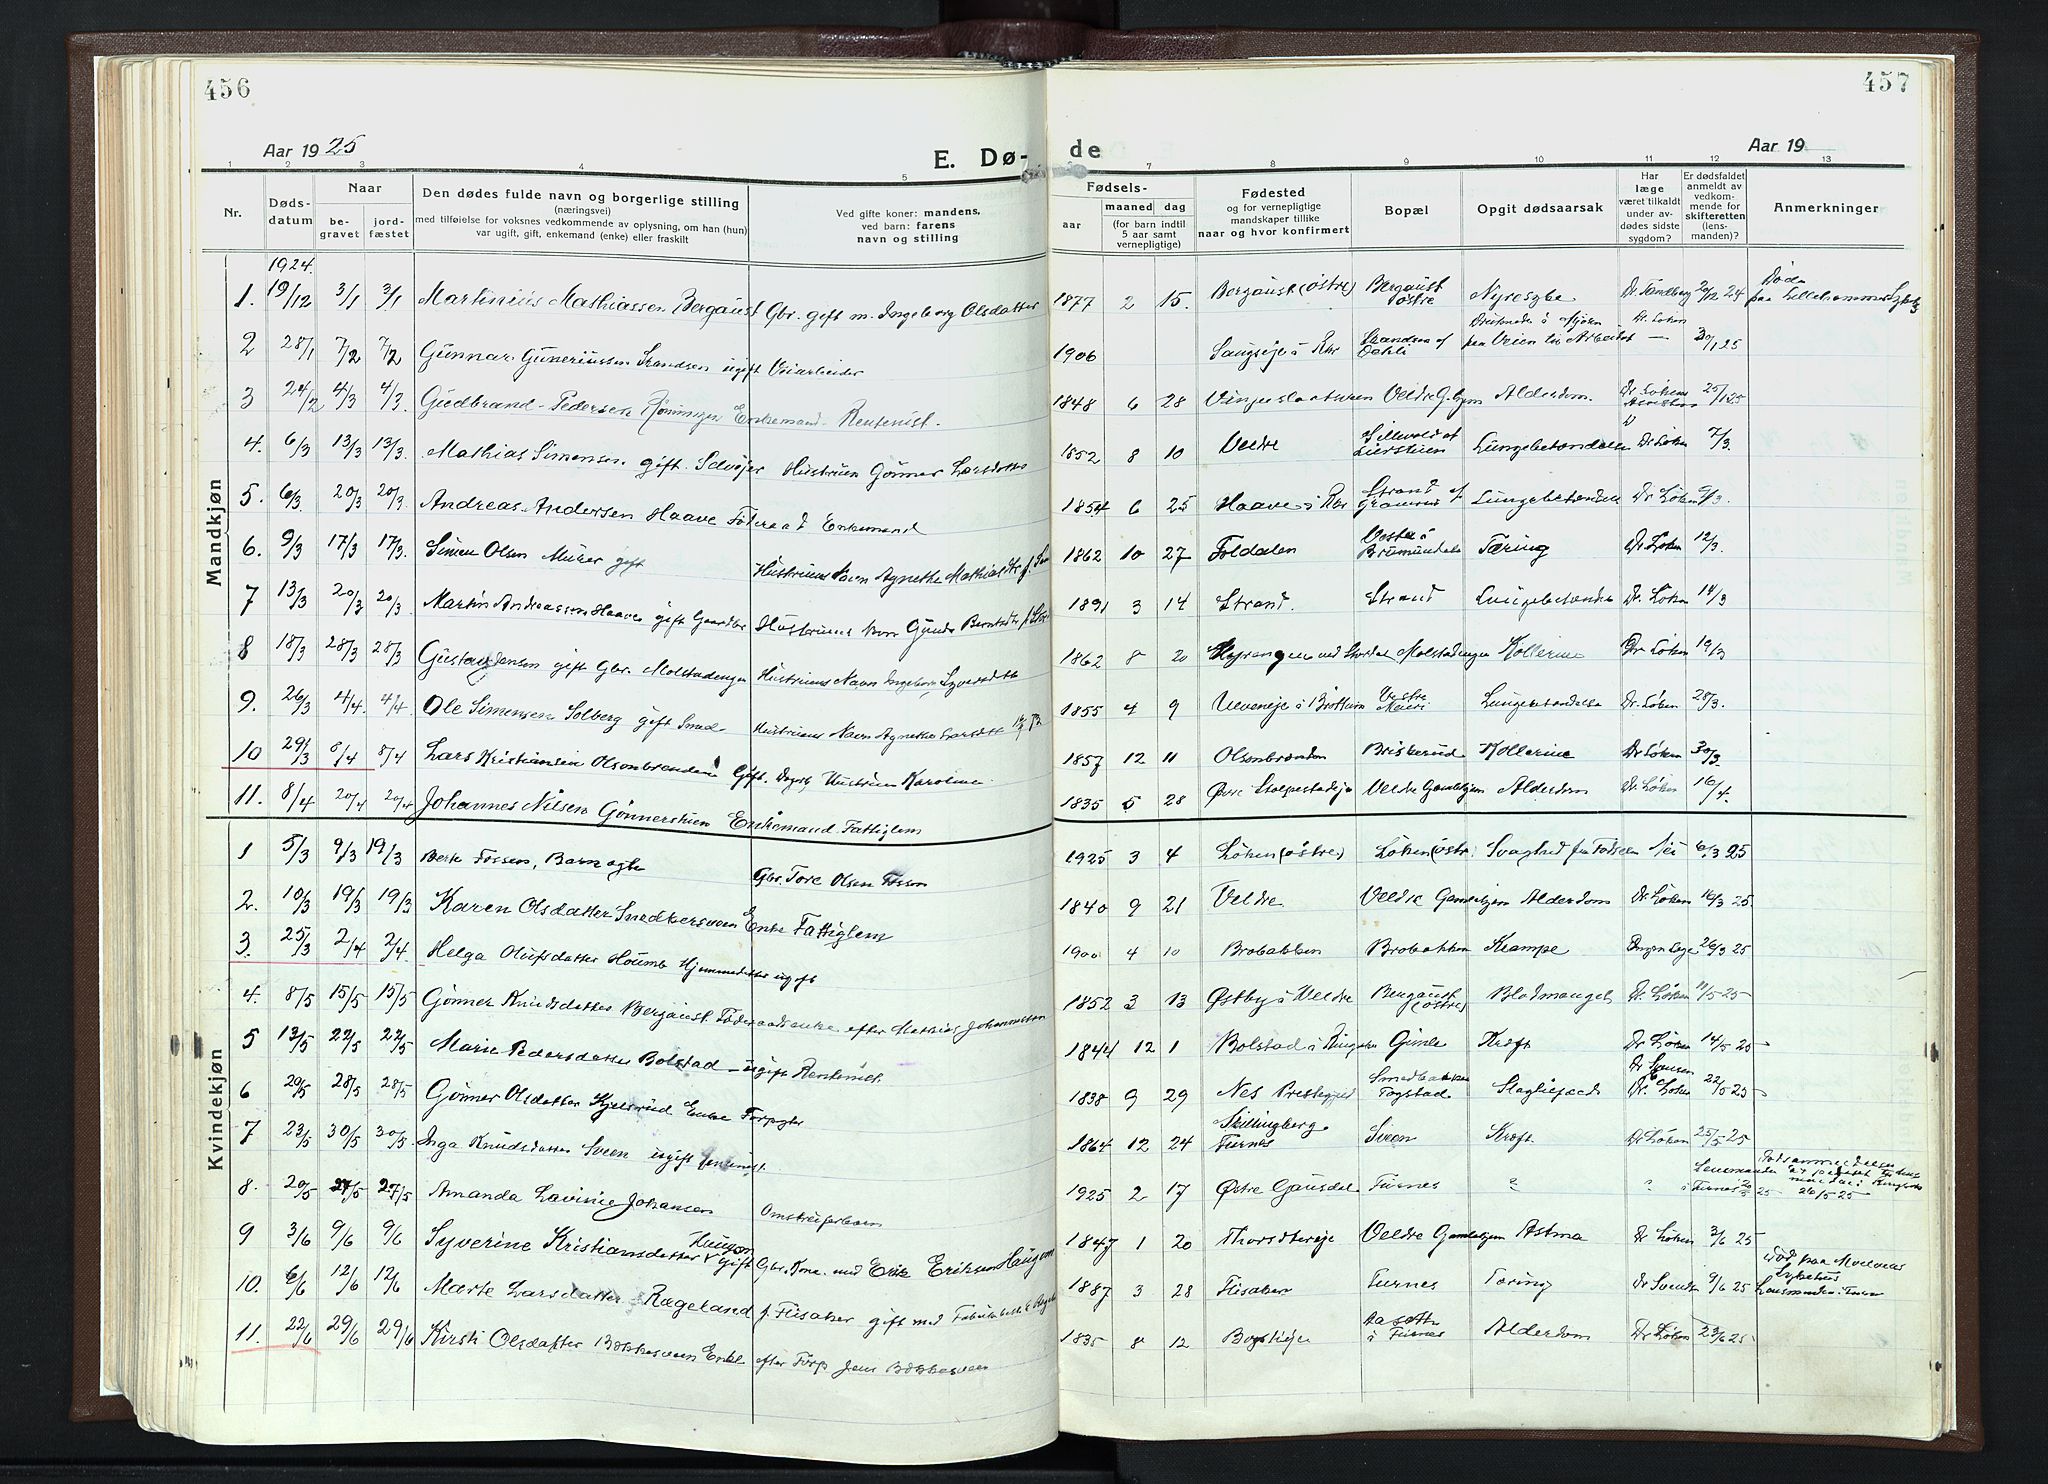 456
457
Aar 1925
E. Dø-
de
Aar 19
1 2 3 4 5 7 8 9 10 11 12 13
Nr.
Døds-
datum
Naar
be-
gravet
jord-
fæstet
Den dødes fulde navn og borgerlige stilling
(næringsvei)
med tilføielse for voksnes vedkommende av oplysning, om han (hun)
var ugift, gift, enkemand (enke) eller fraskilt
Ved gifte koner: mandens,
ved barn: farens
navn og stilling
Fødsels-
aar
maaned dag
(for barn indtil
5 aar samt
vernepligtige)
Fødested
og for vernepligtige
mandskaper tillike
naar og hvor konfirmert
Bopæl
Opgit dødsaarsak
Har
læge
været tilkaldt
under av-
dødes sidste
sygdom?
Er dødsfaldet
anmeldt av
vedkom-
mende for
skifteretten
(lens-
manden)?
Anmerkninger
Mandkjøn
1924.
1. 19/12 3/1 3/1 Martinius Mathiassen Bergaust Gbr. gift m. Ingeborg Olsdatter 1877 2 15. Bergaust (østre) Bergaust østre Dr. Tandberg 20/12 24 Døde paa Lillehammer
2 28/1 7/2 7/2 Gunnar Guneriussen Strandsen ugift Veiarbeider 1906 i Rbr Strandsen af paa Veien til Arbeidet Dr. Løken — 30/1 25
3 24/2 4/3 4/3. Gudbrand Pedersen Rønningen Enkemand Rentenist. 1848 6 28 Veldre G.hjem Alderdom. Dr Løkens 25/ 25
4. 6/3 13/3 13/3. Mathias Simensen gift Selveier Hustruen Gønner Larsdatter 1852 8 10 Veldre Lungebetændelse Dr Løken 7/3.
5. 6/3. 20/3 20/3. Andreas Andersen Haave Føderaad Enkemand 1854 6 25 Haave i Rbr Strand af Lungebetændelse Dr. Løken 9/3.
6. 9/3 17/3 17/3. Simen Olsen Murer gift Hustruens Navn Agnethe Mathiasdtr 1862 10 27 Foldalen Vestre i Brumunddal Tæring Dr. Løken 12/3.
7 13/3 20/3 20/3. Martin Andreassen Haave gift Gaardbr Hustruens Navn Gunda Berntsdtr 1891 3 14 Strand. Strand Lungebetændelse Dr. Løken 14/3
8 18/3 28/3 28/3 Gustav Jensen gift Gbr. Molstadengen Hustruens Navn Ingeborg Syversdtr 1862 8 20 Molstadengen Kollerine Dr Løken 19/3
9. 26/3 4/4. 4/4. Ole Simensen Solberg gift Smed Hustruens Navn Agnethe Larsdtr 1855 4 9 i Brøttum Vestre Lungebetændelse Dr. Løken 28/3.
10 29/3 8/4 8/4 Lars Kristiansen Olsonbrenden Gift. Dagarb Hustruen Karoline. 1857 12 11 Olsonbrenden Briskerud Kollerine Dr Løken 30/3.
11. 8/4 20/4 20/4 Johannes Nilsen Gønnerstuen Enkemand Fattiglem 1835 5 28 Øvre Veldre Gamlehjem Alderdom Dr. Løken 10/4.
Kvindekjøn
1 5/3 9/3 19/3 Berte Fossen, Barn Gbr. Tore Olsen Fossen 1925 3 4 Løken (østre) Løken (østre) Svaghed fra Fødselen Nei 6/3 25
2. 10/3 19/3 19/3 Karen Olsdatter Snedkersveen Enke Fattiglem 1840 9 21 Veldre Veldre Gamlehjem Alderdom Dr. Løken 10/3 25.
3. 25/3 2/4 2/4. Helga Olufsdatter Houmb Hjemmedatter ugift 1900 4 10 Brobakken Brobakken Krampe Ingen Læge 26/3 25
4. 8/5 15/5 15/5 Gønner Knudsdatter Bergaust Føderaadsenke efter Mathias Johannessen 1852 3 13 Østby i Veldre Bergaust (østre) Blodmangel Dr. Løken 11/5-25-
5 13/5 22/5 22/5 Marie Pedersdatter Bolstad — ugift Rentenist. 1844 12 1 Bolstad i Ringsaker Gimle Kræft Dr Løken 14/5 25-
6 20/5 28/5 28/5 Gønner Olsdatter Kjelsrud Enke 1838 9 29 Nes Prestegjeld Smedbakken Fogstad Slagtilfælde Dr. Løken 22/5 25
7 23/5 30/5 30/5 Inga Knudsdatter Sveen ugift 1864 12 24 Skillingberg Furnes Sveen Kræft Dr Løken 25/5 25
8. 20/5 27/5 27/5 Amanda Lavinie Johansen Omstreiferbarn 1925 2 17 Østre Gausdal Furnes ? ? Lensmanden i Furnes 25 26/5-25
9 3/6 9/6 9/6 Syverine Kristiansdatter Haugom gift Gbr. Kone med Erik Eriksen Haugom 1847 1 20 Veldre Gamlehjem Astma Dr Løken 3/6 25
10. 6/6 12/6 12/6 Marte Larsdatter Rageland f. Fusaker gift med 1887 3 28 Fusaker Furnes Tæring 9/6 25 Død paa Moelvens Sykehus
11. 22/6 29/6 29/6 Kirsti Olsdatter Enke efter Torp Jens 1835 8 12 i Furnes Alderdom Dr Løken 23/6 25